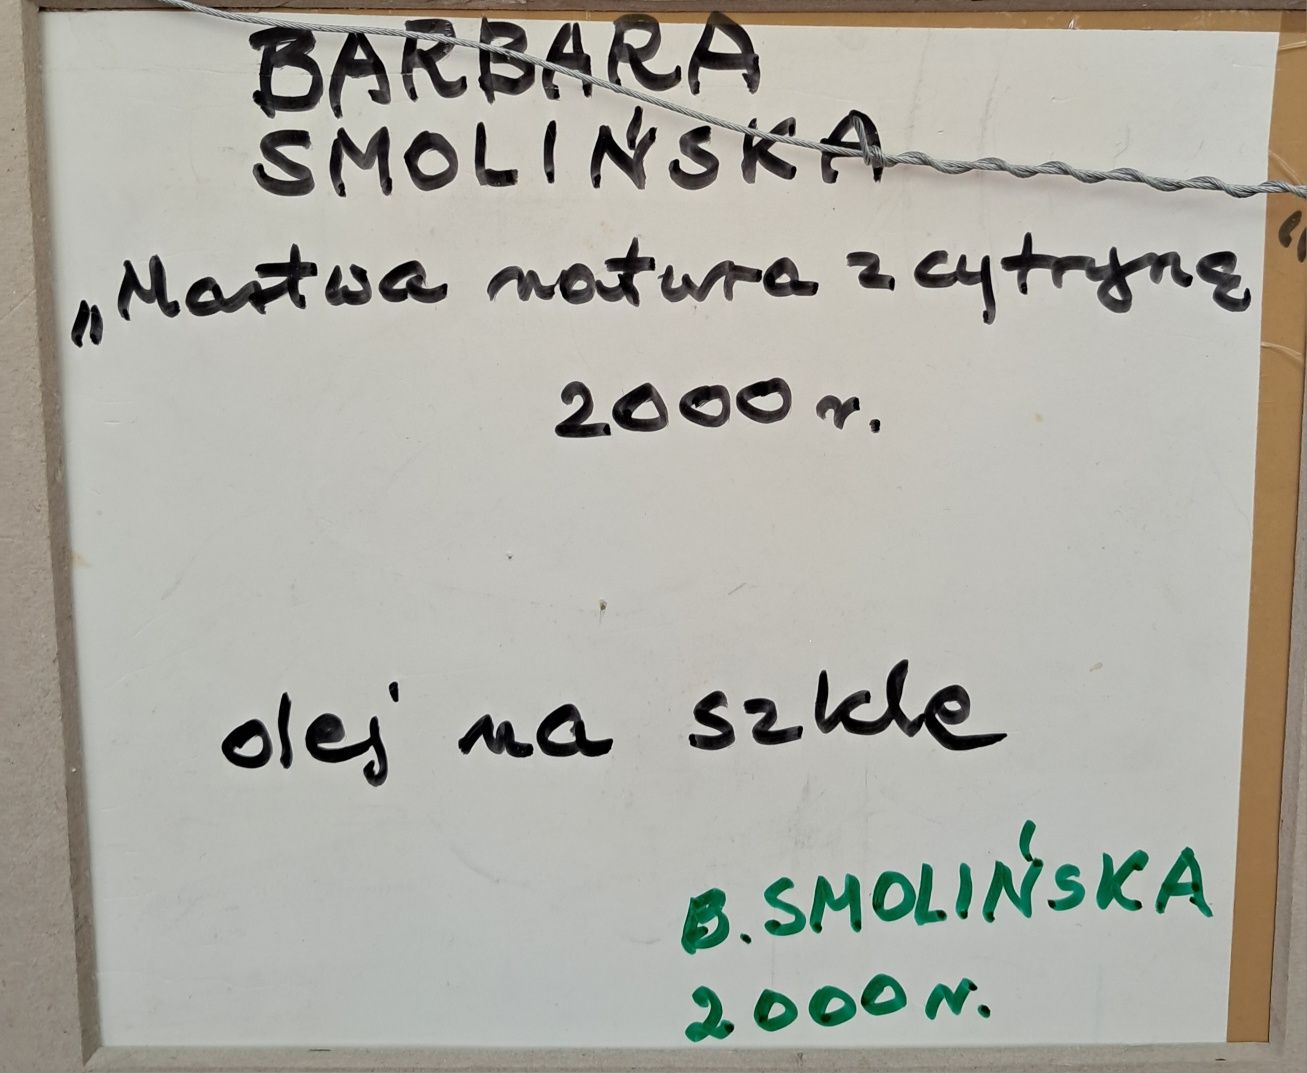 BARBARA
SMOLIŃSKA
„Martwa natura z cytryną"
2000 r.
olej na szkle
B. SMOLIŃSKA
2000 r.